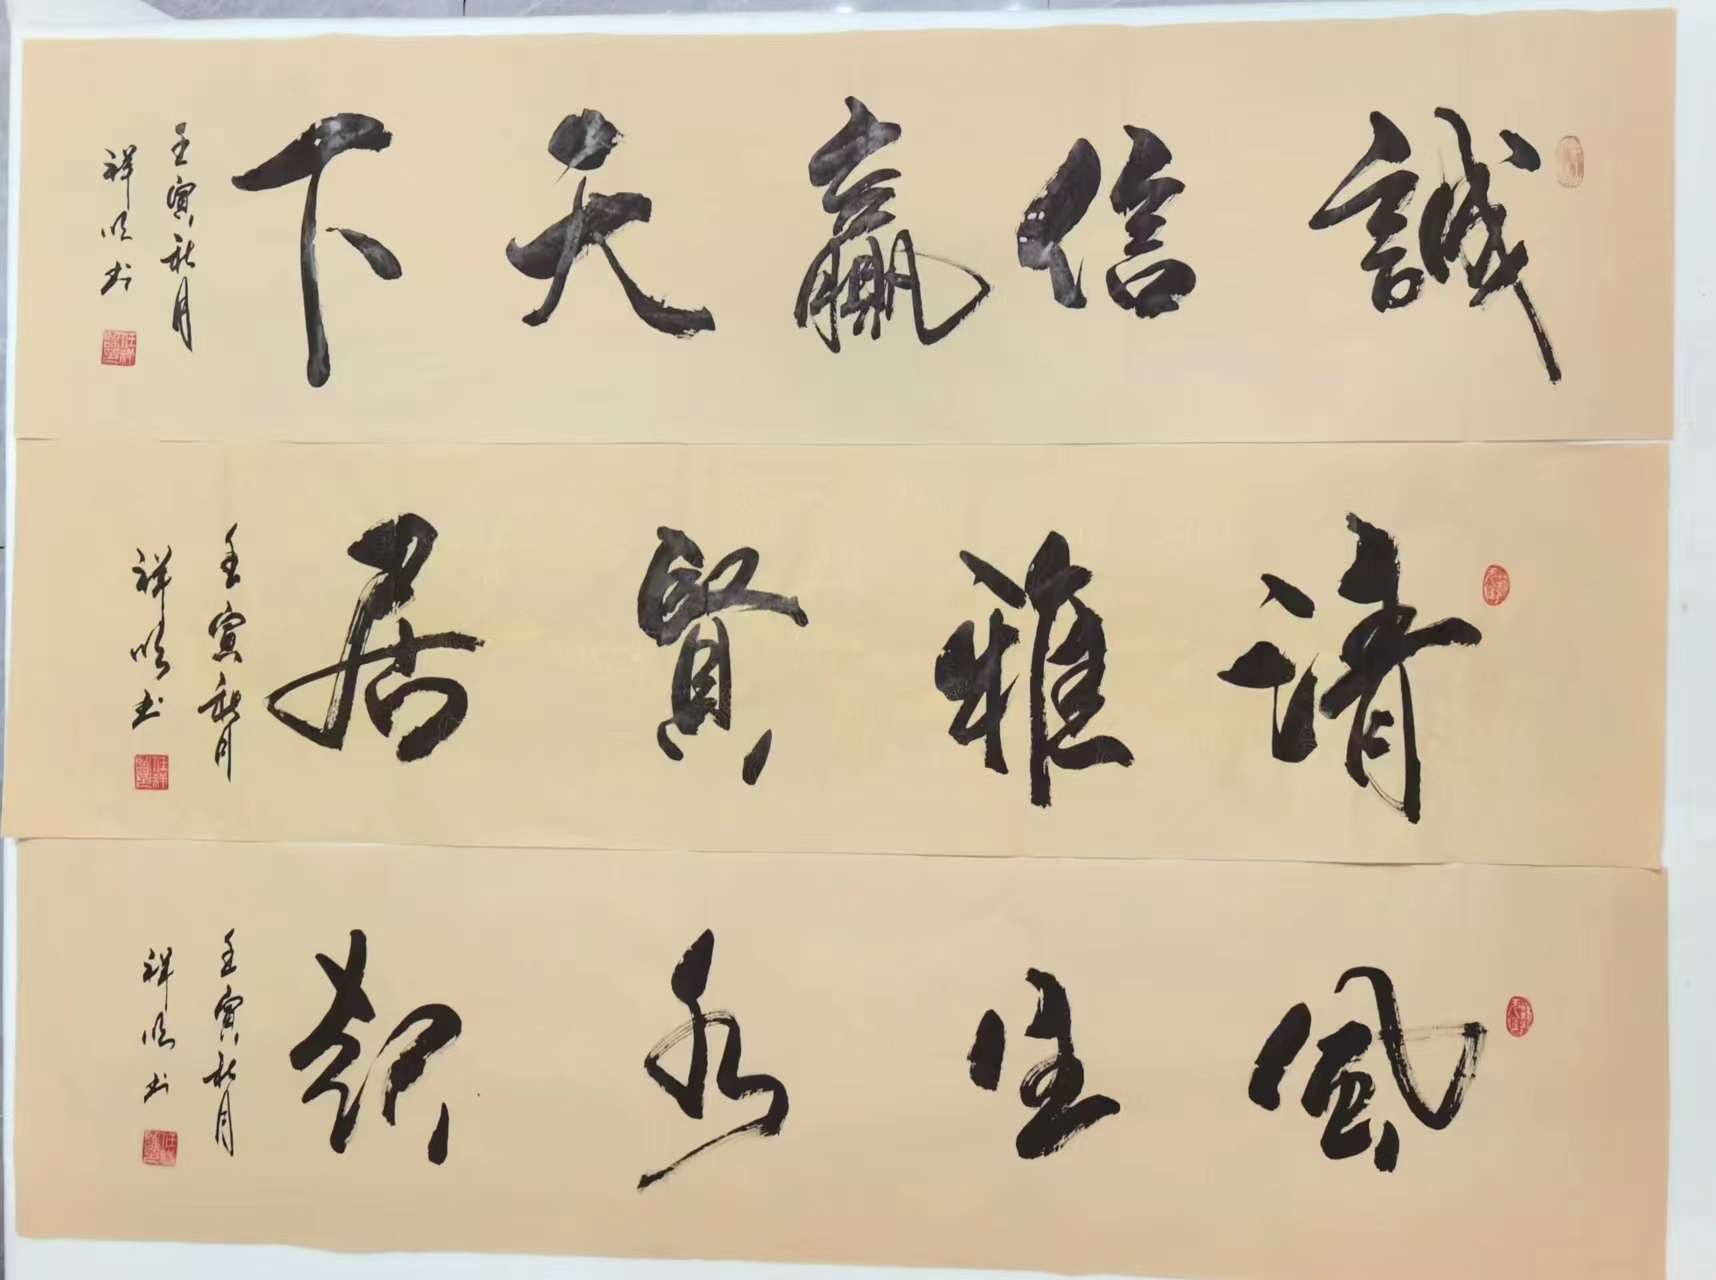 誠信贏天下
壬寅秋月
祥順书
清雅賢居
壬寅秋月
祥順书
風生水起
壬寅秋月
祥順书